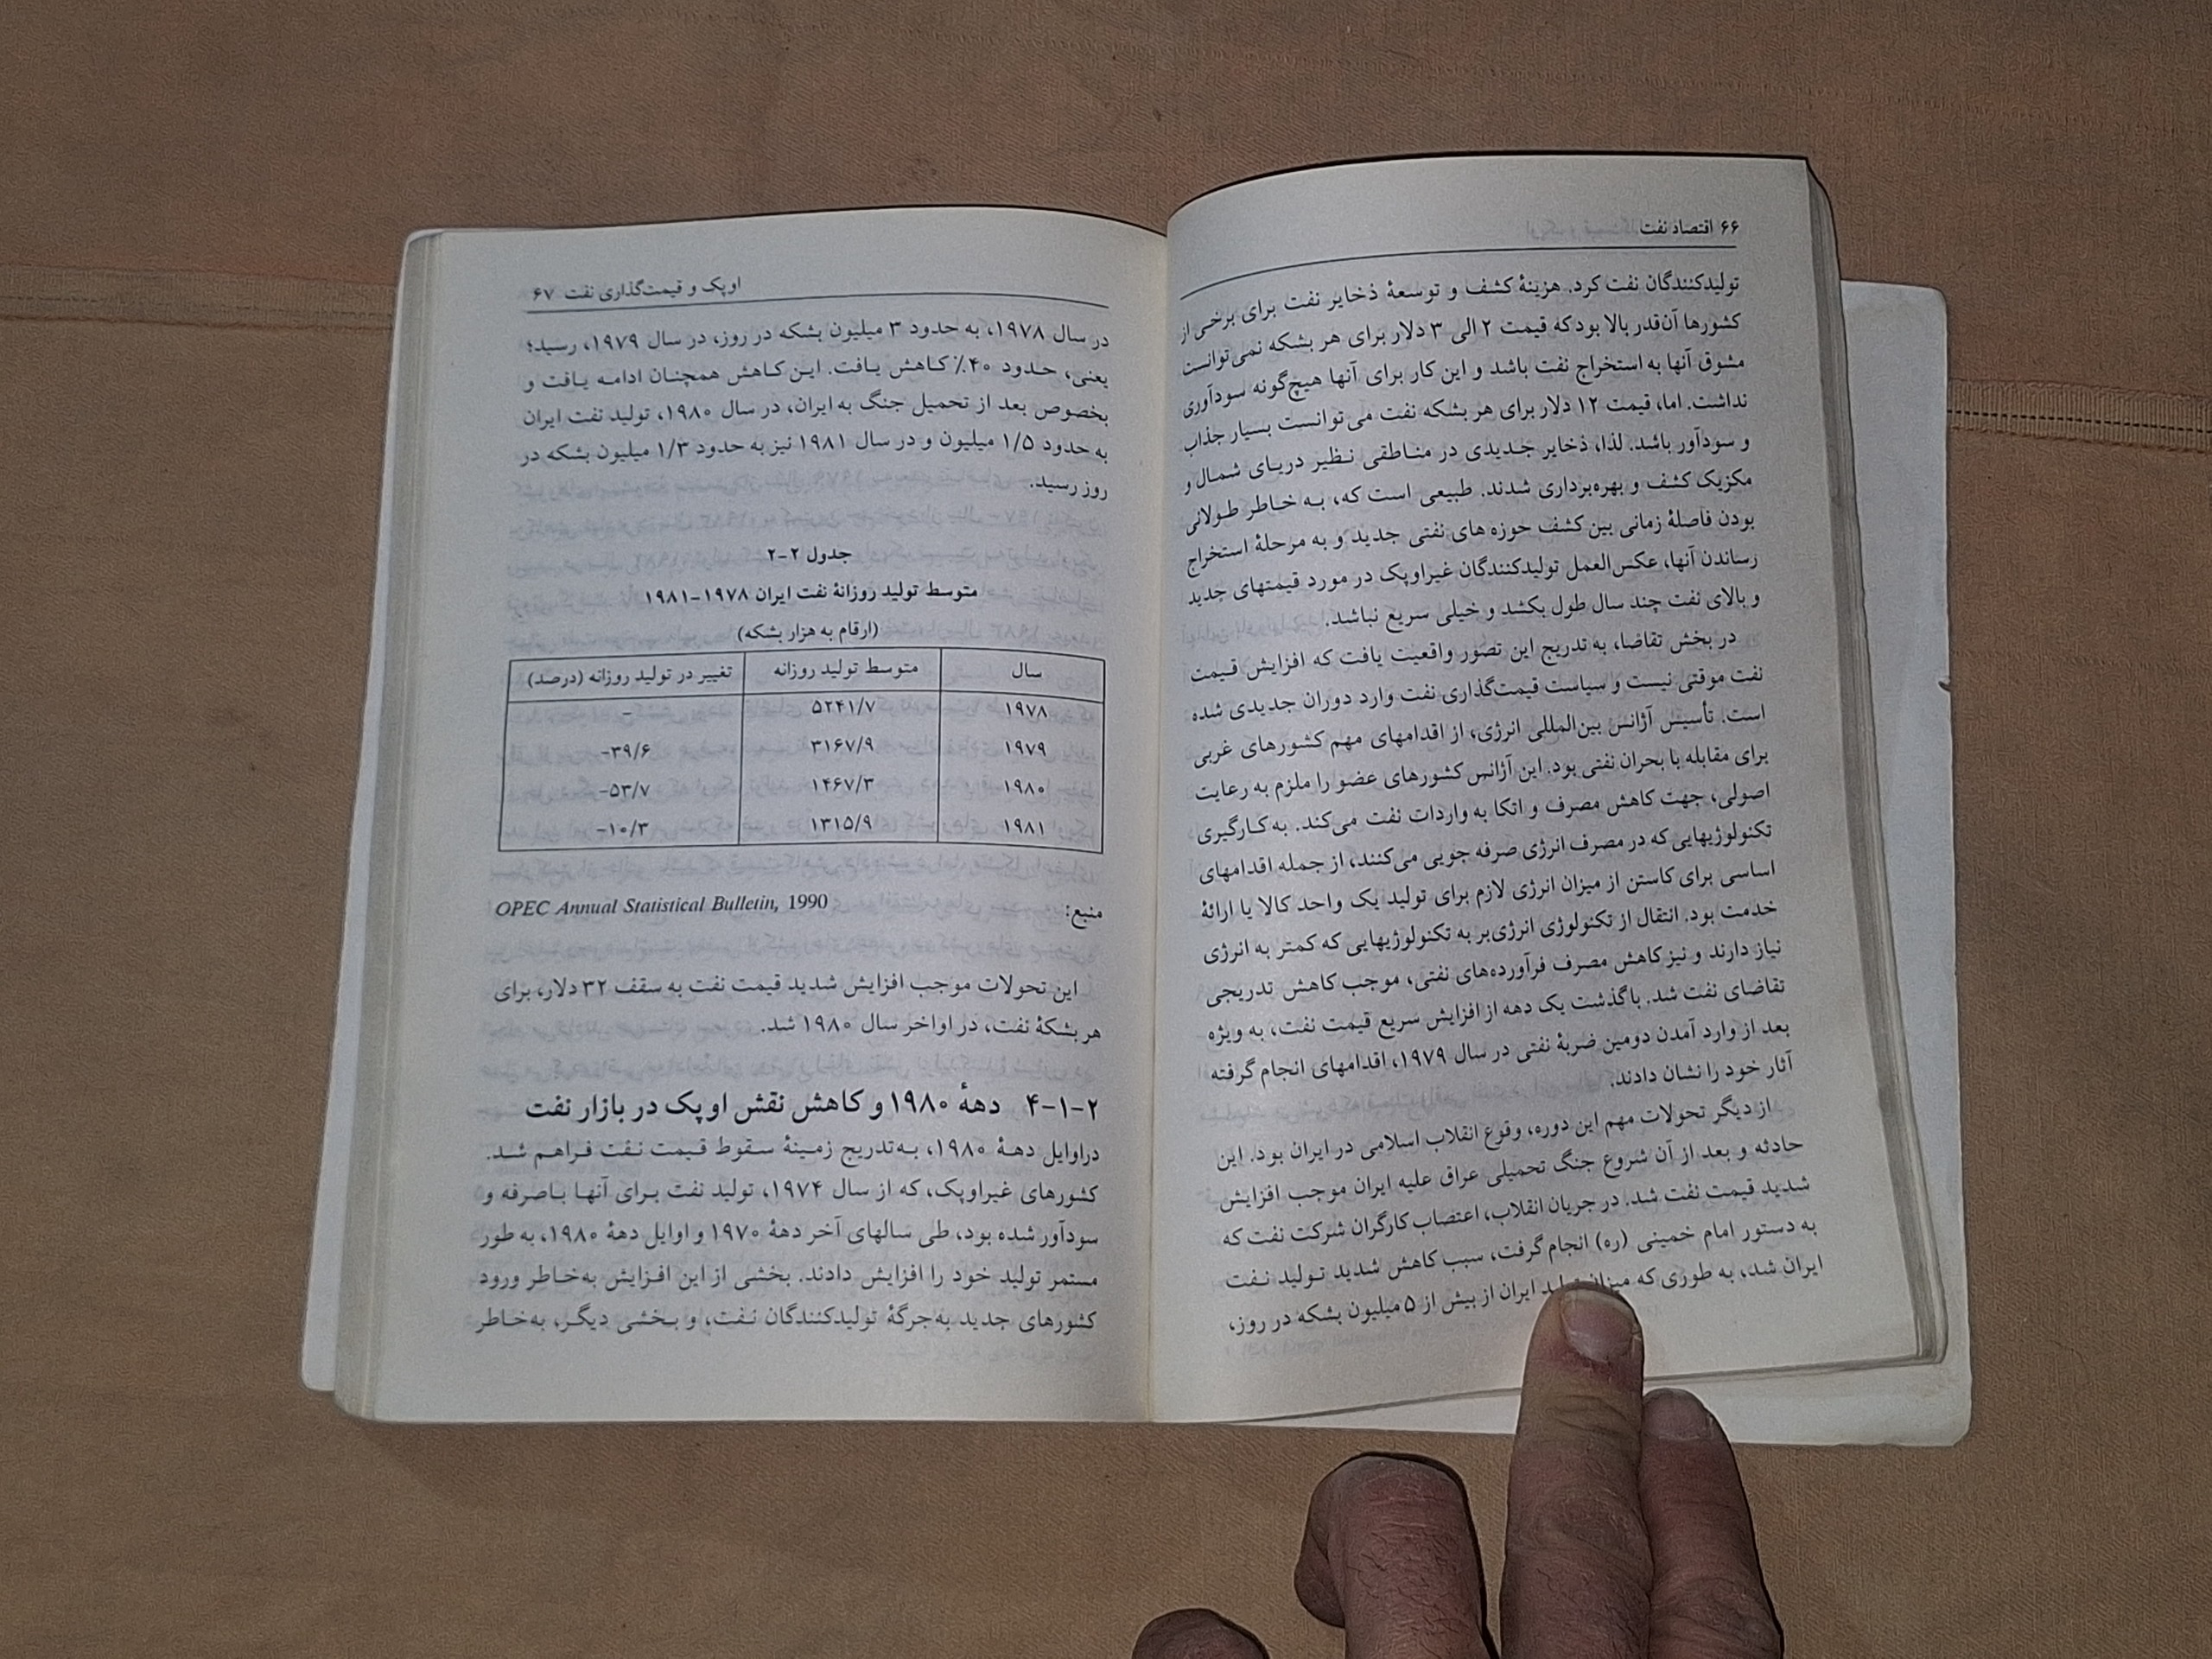 ۶۶ اقتصاد نفت
تولیدکنندگان نفت کرد. هزینهٔ کشف و توسعهٔ ذخایر نفت برای برخی از
کشورها آن‌قدر بالا بود که قیمت ۲ الی ۳ دلار برای هر بشکه نمی‌توانست
مشوق آنها به استخراج نفت باشد و این کار برای آنها هیچ‌گونه سودآوری
نداشت. اما، قیمت ۱۲ دلار برای هر بشکه نفت می‌توانست بسیار جذاب
و سودآور باشد. لذا، ذخایر جدیدی در مناطقی نظیر دریای شمال و
مکزیک کشف و بهره‌برداری شدند. طبیعی است که، به خاطر طولانی
بودن فاصلهٔ زمانی بین کشف حوزه های نفتی جدید و به مرحلهٔ استخراج
رساندن آنها، عکس‌العمل تولیدکنندگان غیراوپک در مورد قیمتهای جدید
و بالای نفت چند سال طول بکشد و خیلی سریع نباشد.
در بخش تقاضا، به تدریج این تصور واقعیت یافت که افزایش قیمت
نفت موقتی نیست و سیاست قیمت‌گذاری نفت وارد دوران جدیدی شده
است. تأسیس آژانس بین‌المللی انرژی، از اقدامهای مهم کشورهای غربی
برای مقابله با بحران نفتی بود. این آژانس کشورهای عضو را ملزم به رعایت
اصولی، جهت کاهش مصرف و اتکا به واردات نفت می‌کند. به‌کارگیری
تکنولوژیهایی که در مصرف انرژی صرفه جویی می‌کنند، از جمله اقدامهای
اساسی برای کاستن از میزان انرژی لازم برای تولید یک واحد کالا یا ارائهٔ
خدمت بود. انتقال از تکنولوژی انرژی‌بر به تکنولوژیهایی که کمتر به انرژی
نیاز دارند و نیز کاهش مصرف فرآورده‌های نفتی، موجب کاهش تدریجی
تقاضای نفت شد. با گذشت یک دهه از افزایش سریع قیمت نفت، به ویژه
بعد از وارد آمدن دومین ضربهٔ نفتی در سال ۱۹۷۹، اقدامهای انجام گرفته
آثار خود را نشان دادند.
از دیگر تحولات مهم این دوره، وقوع انقلاب اسلامی در ایران بود. این
حادثه و بعد از آن شروع جنگ تحمیلی عراق علیه ایران موجب افزایش
شدید قیمت نفت شد. در جریان انقلاب، اعتصاب کارگران شرکت نفت که
به دستور امام خمینی (ره) انجام گرفت، سبب کاهش شدید تولید نفت
ایران شد، به طوری که میزان تولید ایران از بیش از ۵ میلیون بشکه در روز،
اوپک و قیمت‌گذاری نفت ۶۷
در سال ۱۹۷۸، به حدود ۳ میلیون بشکه در روز، در سال ۱۹۷۹، رسید؛
یعنی، حدود ۴۰٪ کاهش یافت. این کاهش همچنان ادامه یافت و
بخصوص بعد از تحمیل جنگ به ایران، در سال ۱۹۸۰، تولید نفت ایران
به حدود ۱/۵ میلیون و در سال ۱۹۸۱ نیز به حدود ۱/۳ میلیون بشکه در
روز رسید.
جدول ۲-۲
متوسط تولید روزانهٔ نفت ایران ۱۹۷۸-۱۹۸۱
(ارقام به هزار بشکه)
سال متوسط تولید روزانه تغییر در تولید روزانه (درصد)
۱۹۷۸ ۵۲۴۱/۷ -
۱۹۷۹ ۳۱۶۷/۹ -۳۹/۶
۱۹۸۰ ۱۴۶۷/۳ -۵۳/۷
۱۹۸۱ ۱۳۱۵/۹ -۱۰/۳
منبع: OPEC Annual Statistical Bulletin, 1990
این تحولات موجب افزایش شدید قیمت نفت به سقف ۳۲ دلار، برای
هر بشکهٔ نفت، در اواخر سال ۱۹۸۰ شد.
۲-۱-۴ دههٔ ۱۹۸۰ و کاهش نقش اوپک در بازار نفت
دراوایل دههٔ ۱۹۸۰، به‌تدریج زمینهٔ سقوط قیمت نفت فراهم شد.
کشورهای غیراوپک، که از سال ۱۹۷۴، تولید نفت برای آنها باصرفه و
سودآور شده بود، طی سالهای آخر دههٔ ۱۹۷۰ و اوایل دههٔ ۱۹۸۰، به طور
مستمر تولید خود را افزایش دادند. بخشی از این افزایش به‌خاطر ورود
کشورهای جدید به‌جرگهٔ تولیدکنندگان نفت، و بخشی دیگر، به‌خاطر